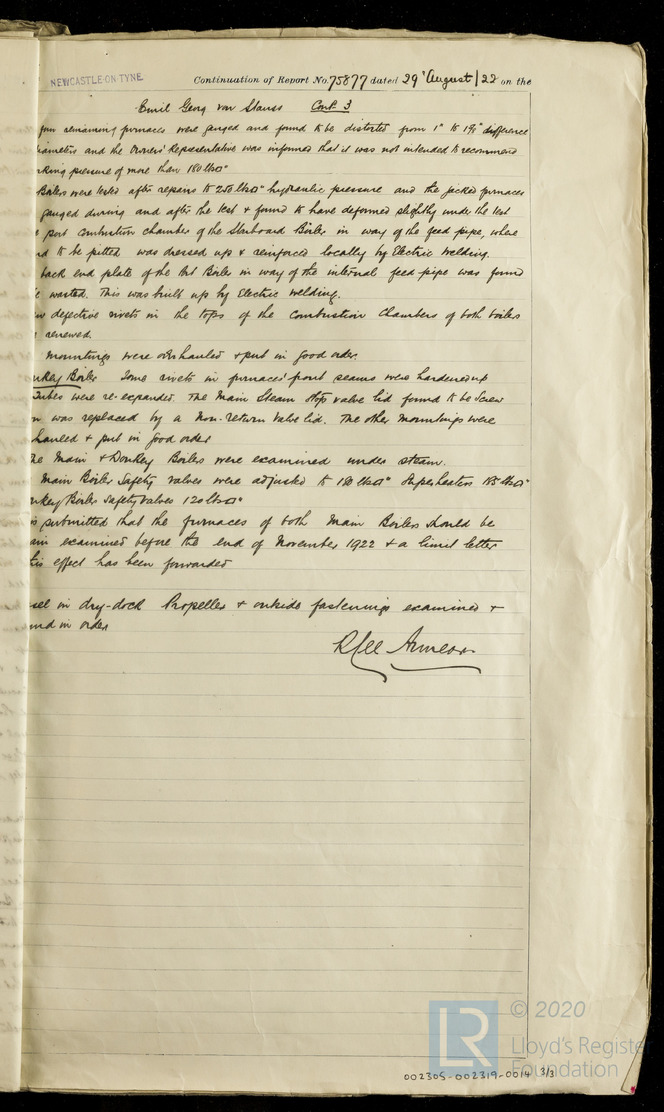 NEWCASTLE-ON-TYNE
Continuation of Report No. 75877 dated 29' August/22 on the
Emil Georg von Stauss Cont. 3
four remaining furnaces were gauged and found to be distorted from 1" to 1 9/16" difference
diameters and the Owners' Representative was informed that it was not intended to recommend
rking pressure of more than 180 lbs□"
Boilers were tested after repairs to 250 lbs□" hydraulic pressure and the jacked furnaces
gauged during and after the test & found to have deformed slightly under the test
port Combustion chamber of the Starboard Boiler in way of the feed pipe, where
nd to be pitted was dressed up & reinforced locally by Electric Welding.
back end plate of the Port Boiler in way of the internal feed pipe was found
e wasted. This was built up by Electric Welding.
w defective rivets in the tops of the Combustion Chambers of both boilers
renewed.
mountings were overhauled & put in good order.
nkey Boiler Some rivets in furnaces' front seams were hardened up
Tubes were re-expanded. The Main Steam stop valve lid found to be screw
n was replaced by a non-return valve lid. The other mountings were
hauled & put in good order
he Main & Donkey Boilers were examined under steam.
Main Boiler Safety valves were adjusted to 180 lbs□" Superheaters 185 lbs□"
nkey Boiler Safety Valves 120 lbs□"
is submitted that the furnaces of both Main Boilers should be
ain examined before the end of November 1922 & a limit letter
this effect has been forwarded
sel in dry-dock Propeller & outside fastenings examined &
und in order
R Lee
© 2020
LR
Lloyd's Register
Foundation
002305-002319-0014 3/3